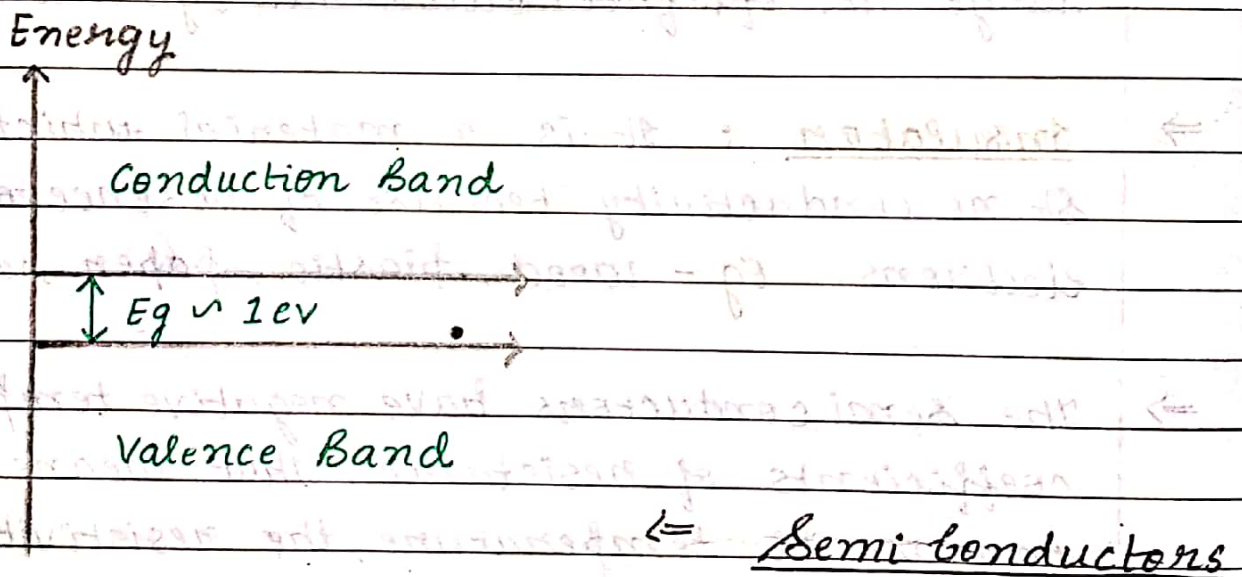 Energy
Conduction Band
Eg ~ 1ev
Valence Band
⇐ Semi Conductors